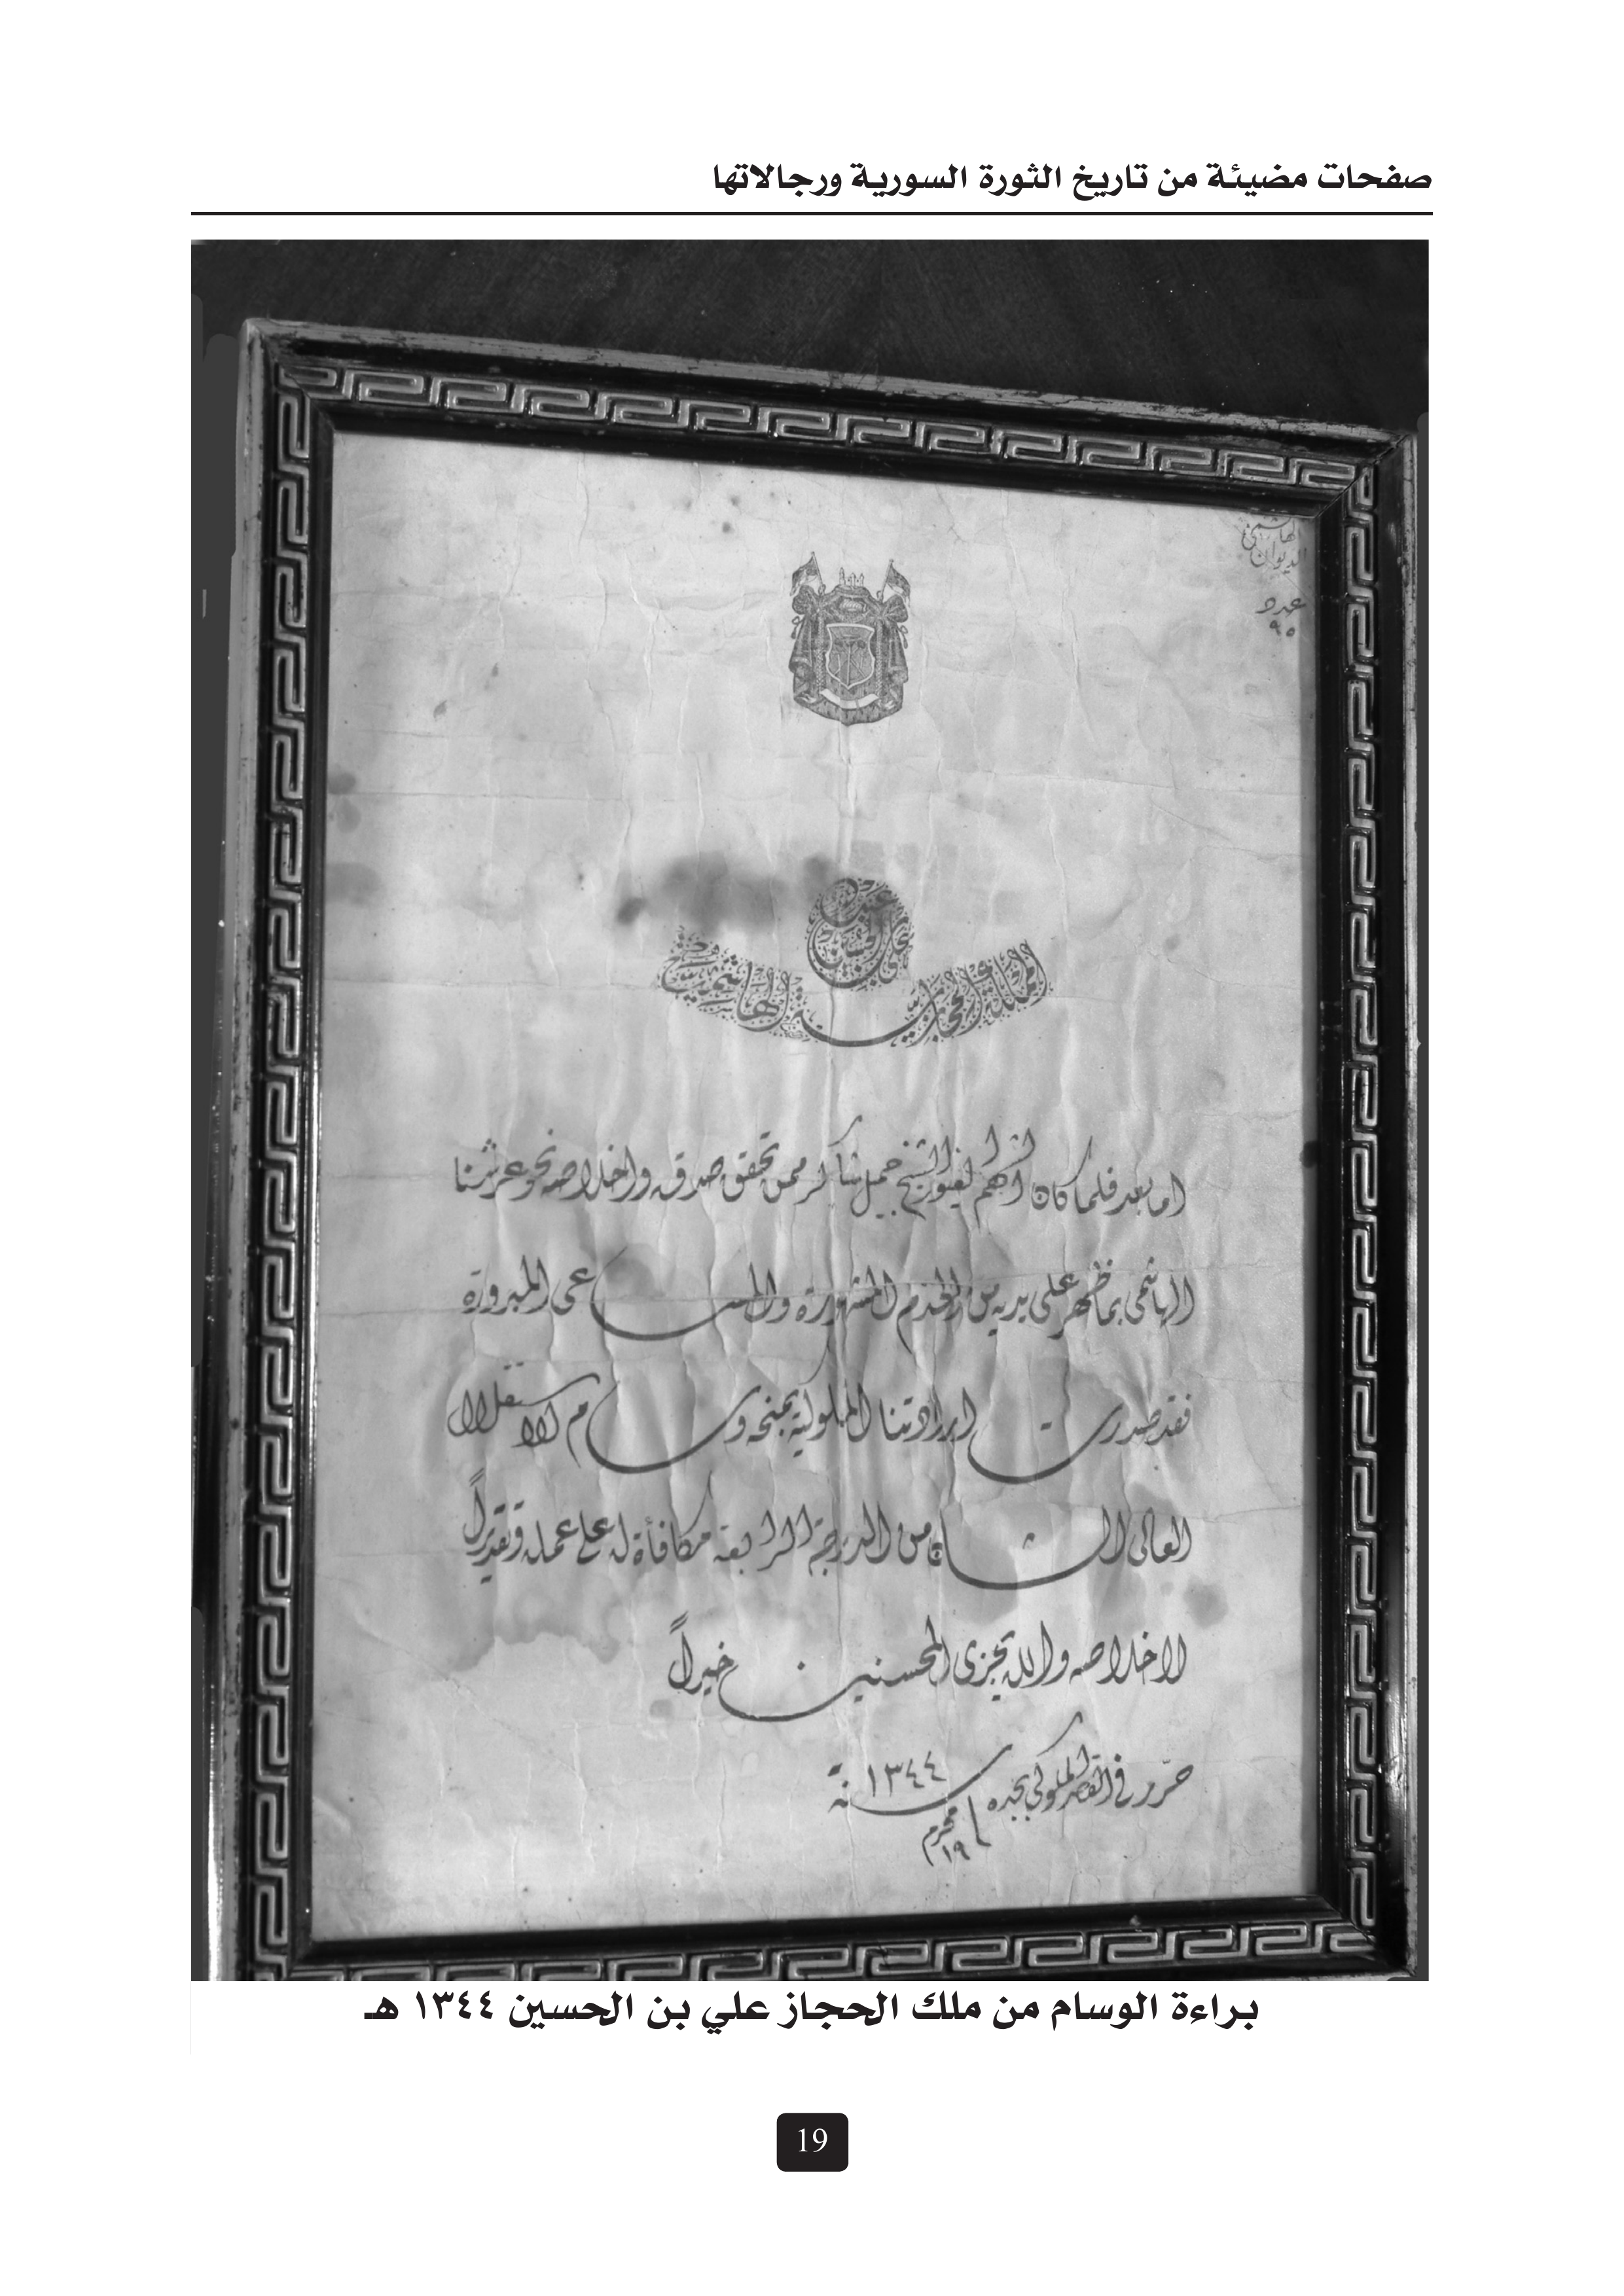 صفحات مضيئة من تاريخ الثورة السورية ورجالاتها
الديوان الهاشمي
عدد
٩٥
علي بن الحسين
المملكة الحجازية الهاشمية
اما بعد فلما كان الشهم الغيور الشيخ جميل شاكر ممن تحقق صدقه واخلاصه نحو عرشنا
الهاشمى بما ظهر على يديه من الخدم المشهورة والمساعى المبرورة
فقد صدرت ارادتنا الملوكية بمنحه وسام الاستقلال
العالى الشان من الدرجة الرابعة مكافأة له على عمله وتقديراً
لاخلاصه والله يجزى المحسنين خيراً
حرر في القصر الملوكي بجده
١٩ محرم سنة ١٣٤٤
براءة الوسام من ملك الحجاز علي بن الحسين ١٣٤٤ هـ
19